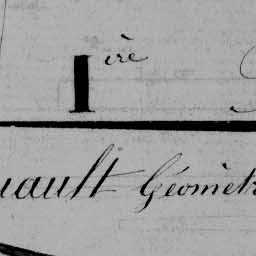 1ère
uault Géomèt